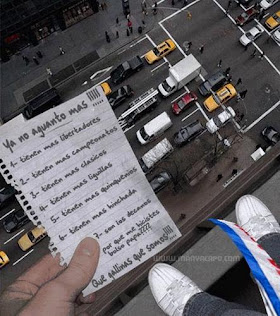 Ya no aguanto mas !!!!
1- tienen mas libertadores
2- tienen mas campeonatos
3- tienen mas clasicos
4- tienen mas liguillas
5- tienen mas quinquenios
6- tienen mas hinchada
7- son los decanos
por que me hicistes
bolso papa????
Que gallinas que somos!!!!
www.manyacapo.com